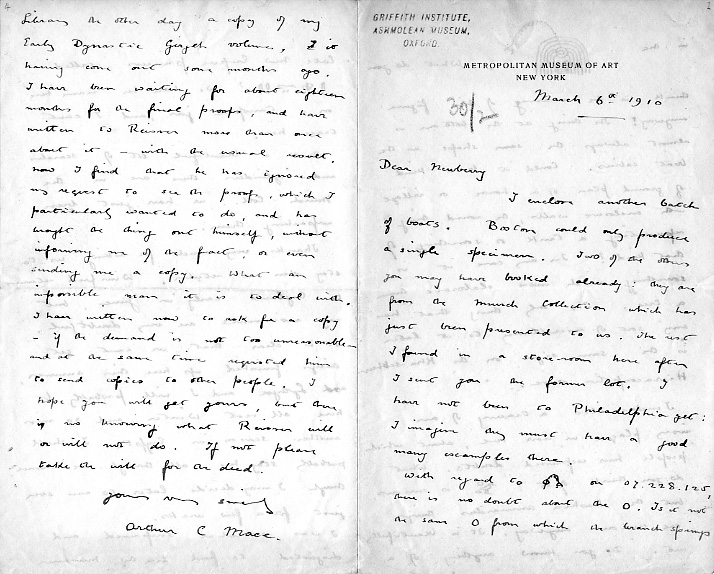 4
Library the other day a copy of my
Early Dynastic Girgeh volume, it is
having come out some months ago.
I have been waiting for about eighteen
months for the final proofs, and have
written to Reisner more than once
about it – with the usual result.
Now I find that he has ignored
my request to see the proofs, which I
particularly wanted to do, and has
brought the thing out himself, without
informing me of the fact, or even
sending me a copy. What an
impossible man it is to deal with.
I have written now to ask for a copy
– if the demand is not too unreasonable –
and at the same time requested him
to send copies to other people. I
hope you will get yours, but there
is no knowing what Reisner will
or will not do. If not please
take the will for the deed.
yours very sincerely
Arthur C Mace.
1
GRIFFITH INSTITUTE,
ASHMOLEAN MUSEUM,
OXFORD.
METROPOLITAN MUSEUM OF ART
NEW YORK
March 6th 1910
30/2
Dear Newberry
I enclose another batch
of boats. Boston could only produce
a single specimen. Two of the others
you may have booked already: they are
from the Murch Collection which has
just been presented to us. The rest
I found in a store-room here after
I sent you the former lot. I
have not been to Philadelphia yet:
I imagine they must have a good
many examples there.
With regard to on 07.228.125,
there is no doubt about the O. Is it not
the same O from which the branch springs